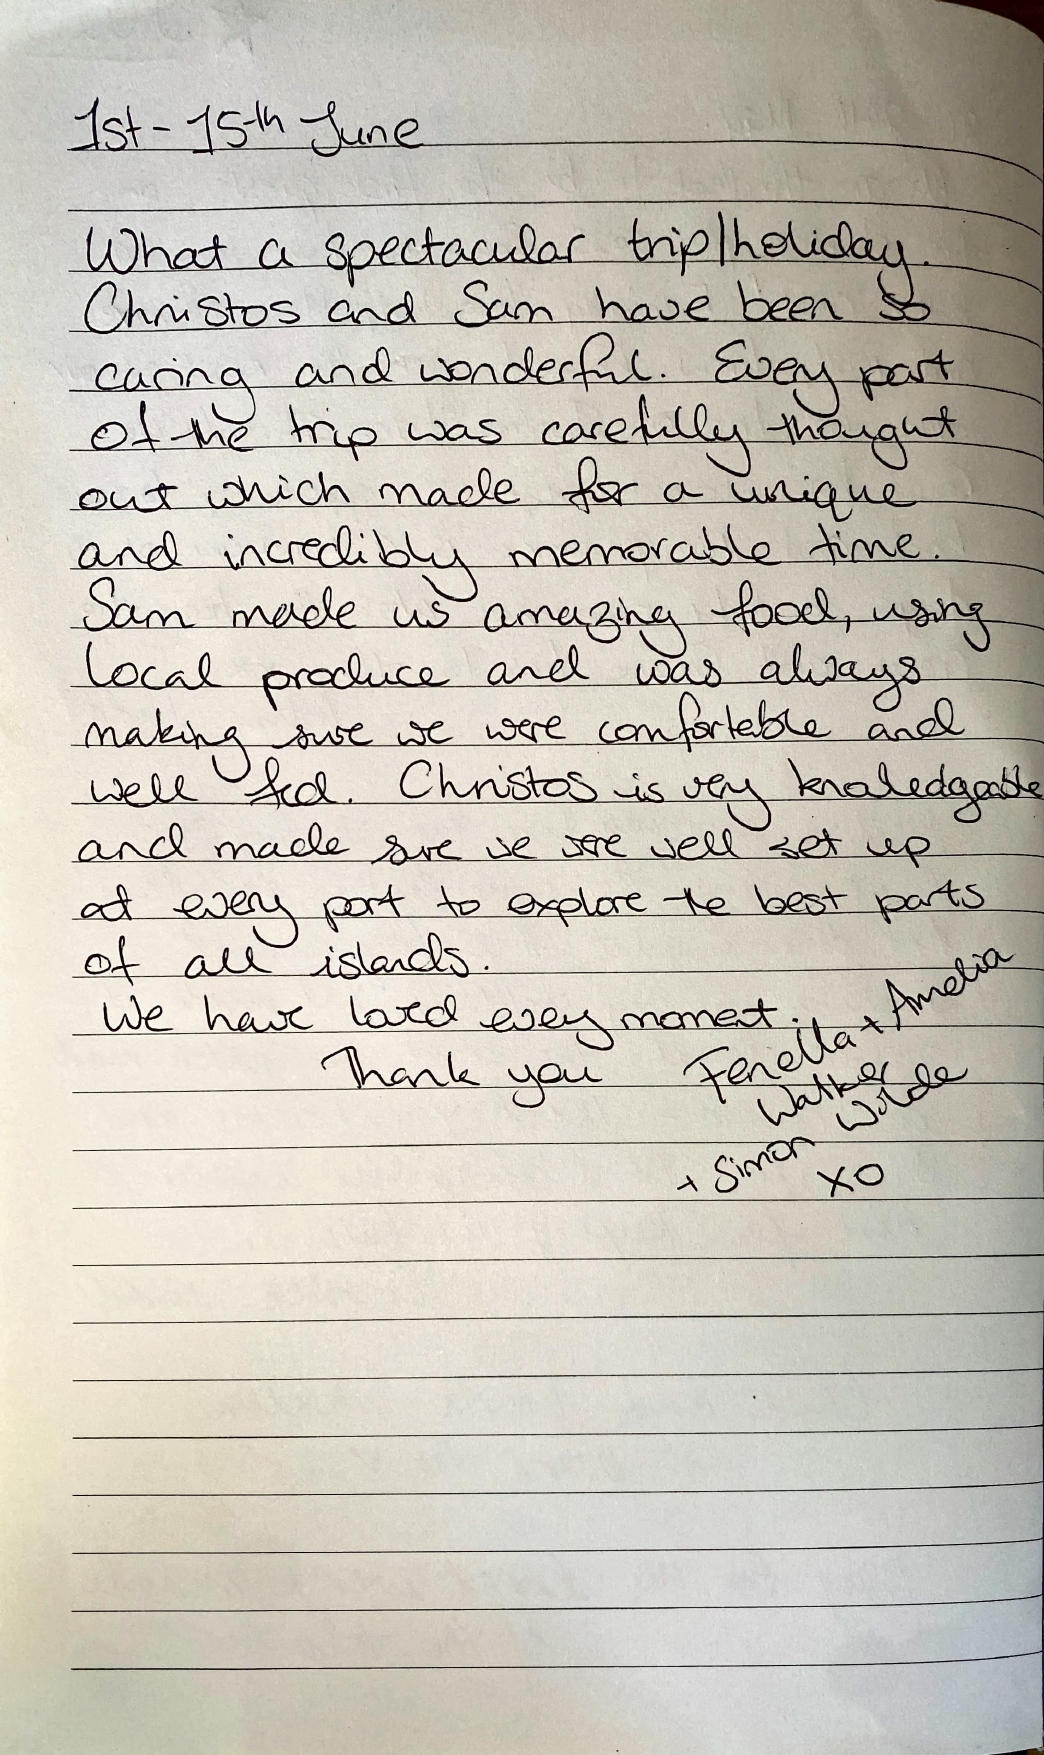 1st - 15th June
What a spectacular trip/holiday.
Christos and Sam have been so
caring and wonderful. Every part
of the trip was carefully thought
out which made for a unique
and incredibly memorable time.
Sam made us amazing food, using
local produce and was always
making sure we were comfortable and
well fed. Christos is very knowledgeable
and made sure we were well set up
at every port to explore the best parts
of all islands.
We have loved every moment.
Thank you
Fenella + Amelia
Walker
+ Simon Wilde
XO